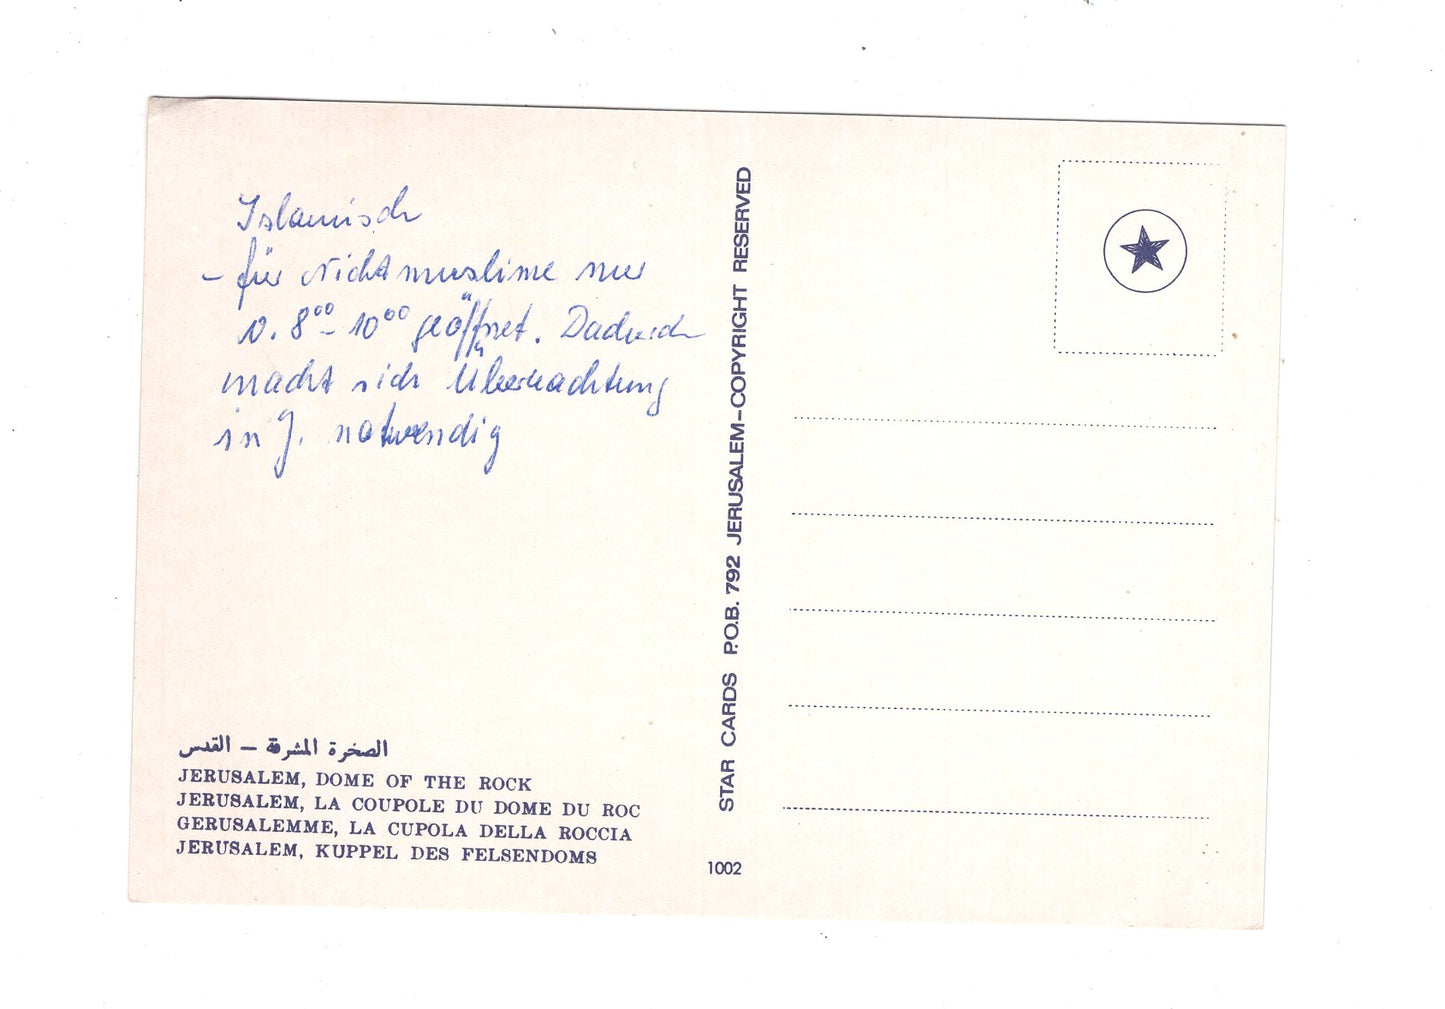 Islamisch
– für Nichtmuslime nur
v. 8⁰⁰ – 10⁰⁰ geöffnet. Dadurch
macht sich Übernachtung
in J. notwendig
الصخرة المشرفة – القدس
JERUSALEM, DOME OF THE ROCK
JERUSALEM, LA COUPOLE DU DOME DU ROC
GERUSALEMME, LA CUPOLA DELLA ROCCIA
JERUSALEM, KUPPEL DES FELSENDOMS
STAR CARDS P.O.B. 792 JERUSALEM–COPYRIGHT RESERVED
1002